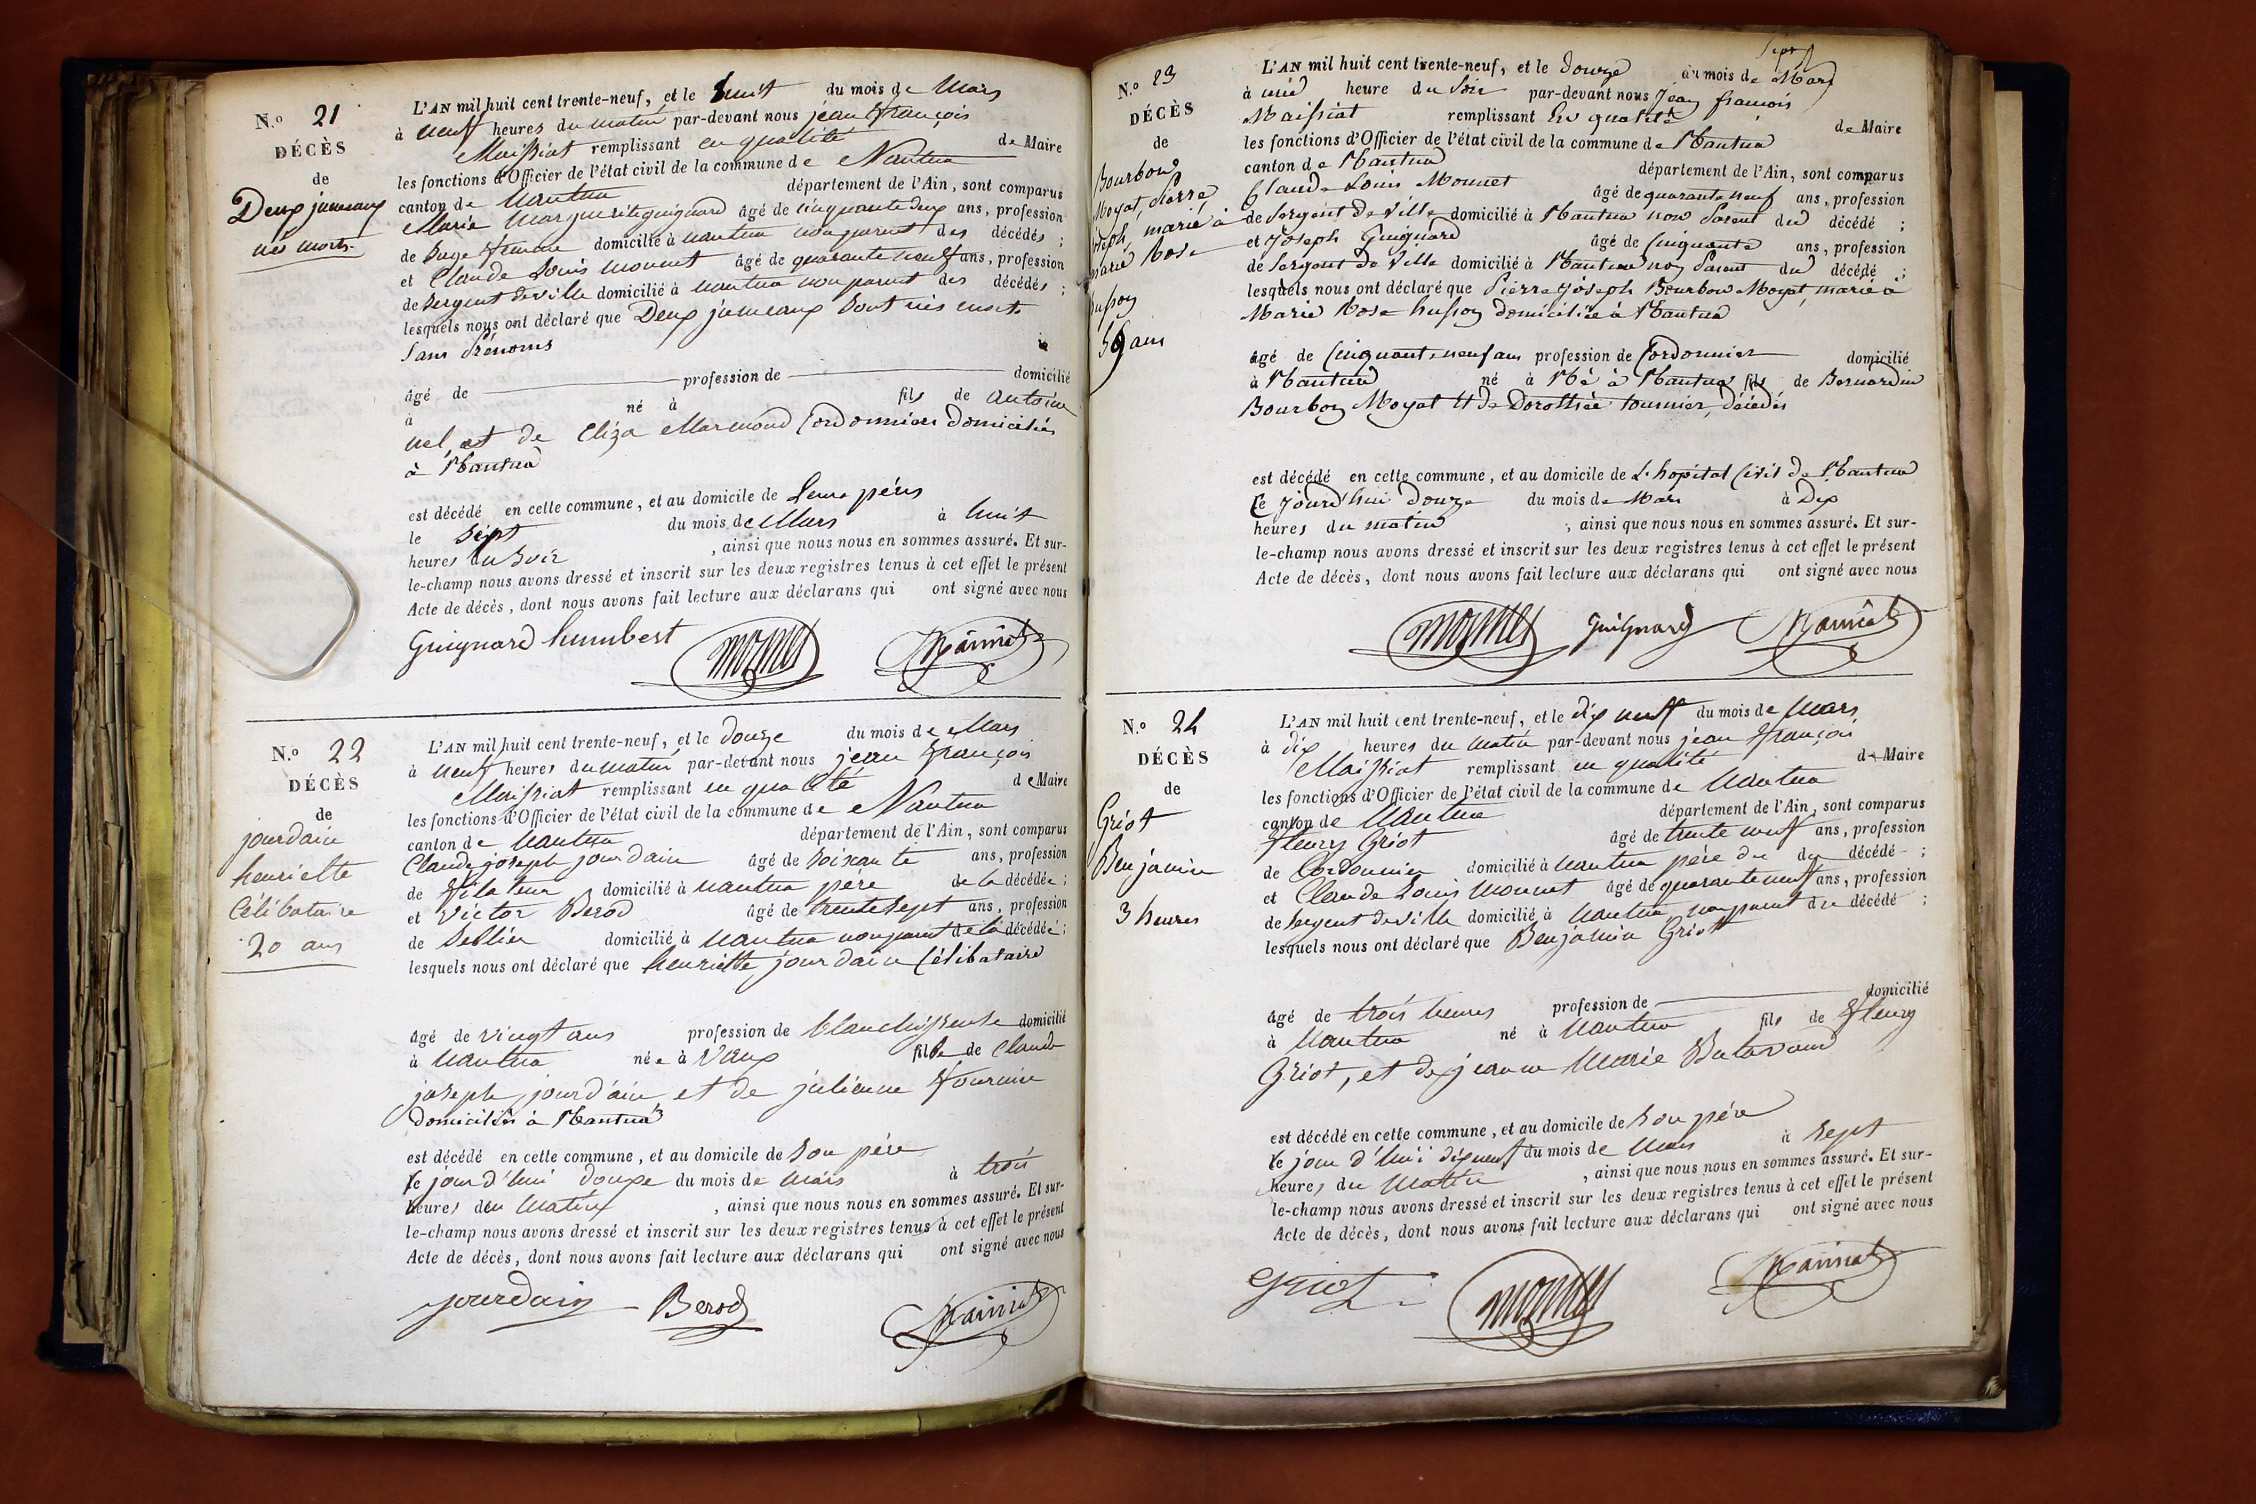 N.º 21
DÉCÈS
de
Deux jumeaux
nés morts.
L'AN mil huit cent trente-neuf, et le huit du mois de Mars
à neuf heures du matin par-devant nous jean françois
Maissiat remplissant en qualité de Maire
les fonctions d'Officier de l'état civil de la commune de Nantua
canton de Nantua département de l'Ain, sont comparus
Marie Marguerite guignard âgé de cinquante deux ans, profession
de Sage femme domicilié à nantua non parent des décédés ;
et Claude Louis monnet âgé de quarante neuf ans, profession
de Sergent de ville domicilié à nantua non parent des décédés ;
lesquels nous ont déclaré que Deux jumeaux Sont nés morts
Sans Prénoms
âgé de profession de domicilié
à né à fils de antoine
uel et de Eliza Marmond Cordonniers Domiciliés
à Nantua
est décédé en cette commune, et au domicile de Leurs péres
le Sept du mois de Mars à huit
heures du Soir , ainsi que nous nous en sommes assuré. Et sur-
le-champ nous avons dressé et inscrit sur les deux registres tenus à cet effet le présent
Acte de décès, dont nous avons fait lecture aux déclarans qui ont signé avec nous
Guignard humbert monnet Maissiat
N.º 22
DÉCÈS
de
jourdain
henriette
Célibataire
20 ans
L'AN mil huit cent trente-neuf, et le douze du mois de Mars
à neuf heures du matin par-devant nous jean françois
Maissiat remplissant en qualité de Maire
les fonctions d'Officier de l'état civil de la commune de Nantua
canton de Nantua département de l'Ain, sont comparus
Claude joseph jourdain âgé de soixante ans, profession
de filateur domicilié à nantua pére de la décédée ;
et victor Berod âgé de trente Sept ans, profession
de Sellier domicilié à nantua non parent de la décédée ;
lesquels nous ont déclaré que henriette jourdain Célibataire
âgé de vingt ans profession de blanchisseuse domicilié
à nantua née à Vaux fille de Claude
joseph jourd'ain et de julienne fournier
Domiciliés à Nantua
est décédé en cette commune, et au domicile de Son pére
le jour d'hui douze du mois de Mars à trois
heures du Matin , ainsi que nous nous en sommes assuré. Et sur-
le-champ nous avons dressé et inscrit sur les deux registres tenus à cet effet le présent
Acte de décès, dont nous avons fait lecture aux déclarans qui ont signé avec nous
jourdain Berod Maissiat
N.º 23
DÉCÈS
de
Bourbon
Moyat, Pierre
joseph, marié à
Marie Rose
hufson
59 ans
L'AN mil huit cent trente-neuf, et le douze du mois de Mars
à une heure du Soir par-devant nous Jean françois
Maissiat remplissant En qualité de Maire
les fonctions d'Officier de l'état civil de la commune de Nantua
canton de Nantua département de l'Ain, sont comparus
Claude Louis Monnet âgé de quarante neuf ans, profession
de Sergent de Ville domicilié à Nantua non Parent du décédé ;
et Joseph Guignard âgé de Cinquante ans, profession
de Sergent de Ville domicilié à Nantua non Parent du décédé ;
lesquels nous ont déclaré que Pierre Joseph Bourbon Moyat, marié à
Marie Rose hufson domiciliée à Nantua
âgé de Cinquante neuf ans profession de Cordonnier domicilié
à Nantua né à Né à Nantua fils de Bernardin
Bourbon Moyat et de Dorothée tournier, décédés
est décédé en cette commune, et au domicile de L'hopital Civil de Nantua
Ce Jourd'hui douze du mois de Mars à Dix
heures du matin , ainsi que nous nous en sommes assuré. Et sur-
le-champ nous avons dressé et inscrit sur les deux registres tenus à cet effet le présent
Acte de décès, dont nous avons fait lecture aux déclarans qui ont signé avec nous
monnet Guignard Maissiat
N.º 24
DÉCÈS
de
Griot
Benjamin
3 heures
L'AN mil huit cent trente-neuf, et le dix neuf du mois de Mars
à dix heures du matin par-devant nous jean françois
Maissiat remplissant en qualité de Maire
les fonctions d'Officier de l'état civil de la commune de Nantua
canton de Nantua département de l'Ain, sont comparus
fleury Griot âgé de trente neuf ans, profession
de Cordonnier domicilié à nantua pére du du décédé ;
et Claude Louis monnet âgé de quarante neuf ans, profession
de Sergent de ville domicilié à nantua non parent du décédé ;
lesquels nous ont déclaré que Benjamin Griott
âgé de trois heures profession de domicilié
à Nantua né à Nantua fils de fleury
Griot, et de jeanne Marie
est décédé en cette commune, et au domicile de Son pére
le jour d'hui dixneuf du mois de Mars à Sept
heures du Matin , ainsi que nous nous en sommes assuré. Et sur-
le-champ nous avons dressé et inscrit sur les deux registres tenus à cet effet le présent
Acte de décès, dont nous avons fait lecture aux déclarans qui ont signé avec nous
Griot monnet Maissiat